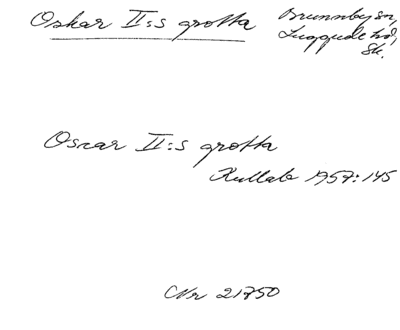 Oskar II:s grotta
Brunnby sn,
Luggude hd,
Sk.
Oscar II:s grotta
Kullab 1957:145
Nr 21750